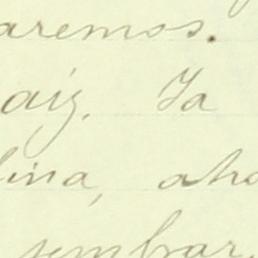 aremos.
aiz. Ya
lina, aho
sembrar